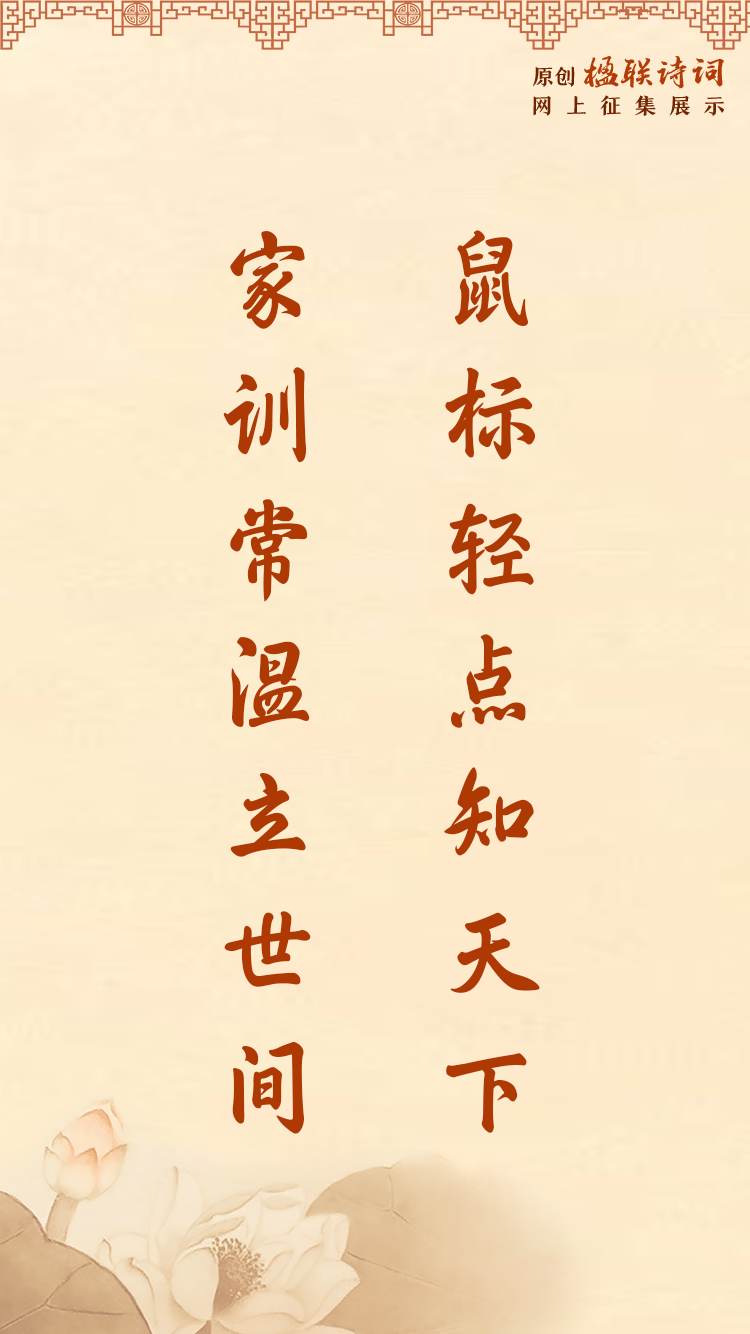 原创 楹联诗词
网上征集展示
鼠标轻点知天下
家训常温立世间